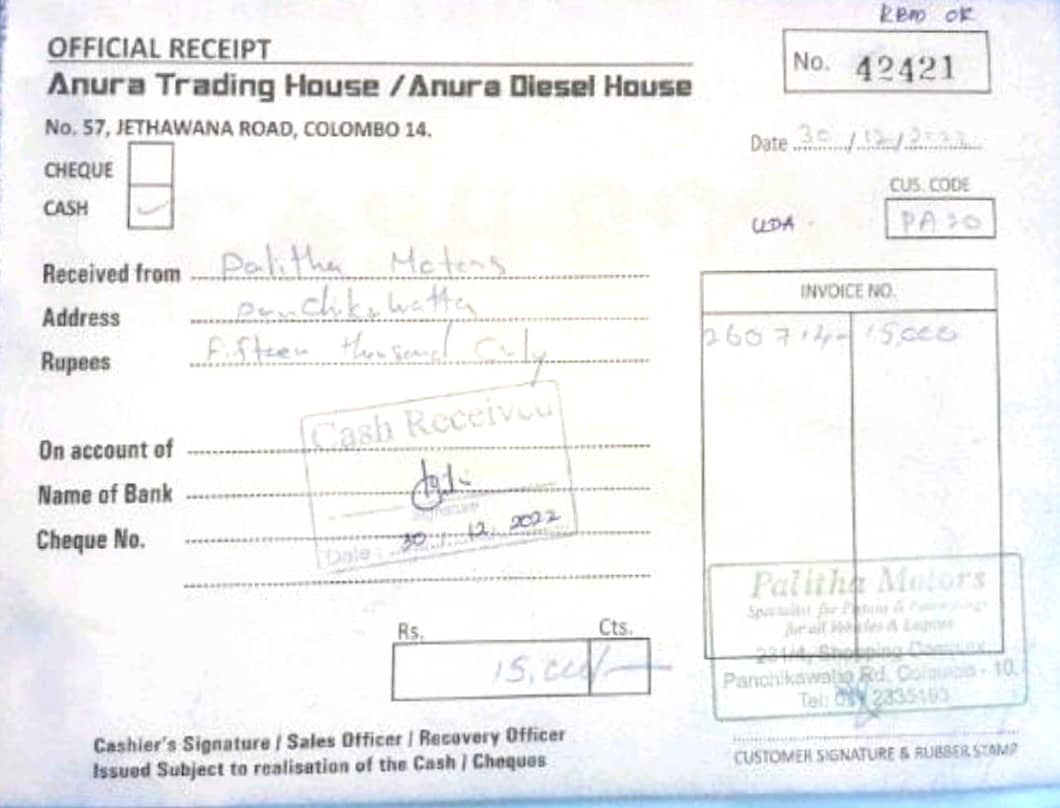 RBM OK
OFFICIAL RECEIPT
No. 42421
Anura Trading House / Anura Diesel House
No. 57, JETHAWANA ROAD, COLOMBO 14.
Date 30/12/2022
CHEQUE
CASH
CUS. CODE
UDA PA20
Received from Palitha Motors
Address Panchikawatta
Rupees Fifteen thousand Only
INVOICE NO.
260714- 15,000
Cash Received
On account of
Name of Bank
Signature
Cheque No.
Date : 30. 12. 2022
Palitha Motors
Specialist for
for all Vehicles &
231/4, Shopping Complex,
Panchikawatta Rd, Colombo - 10.
Tel: 2335193
Rs. Cts.
15,000/-
Cashier's Signature / Sales Officer / Recovery Officer
Issued Subject to realisation of the Cash / Cheques
CUSTOMER SIGNATURE & RUBBER STAMP